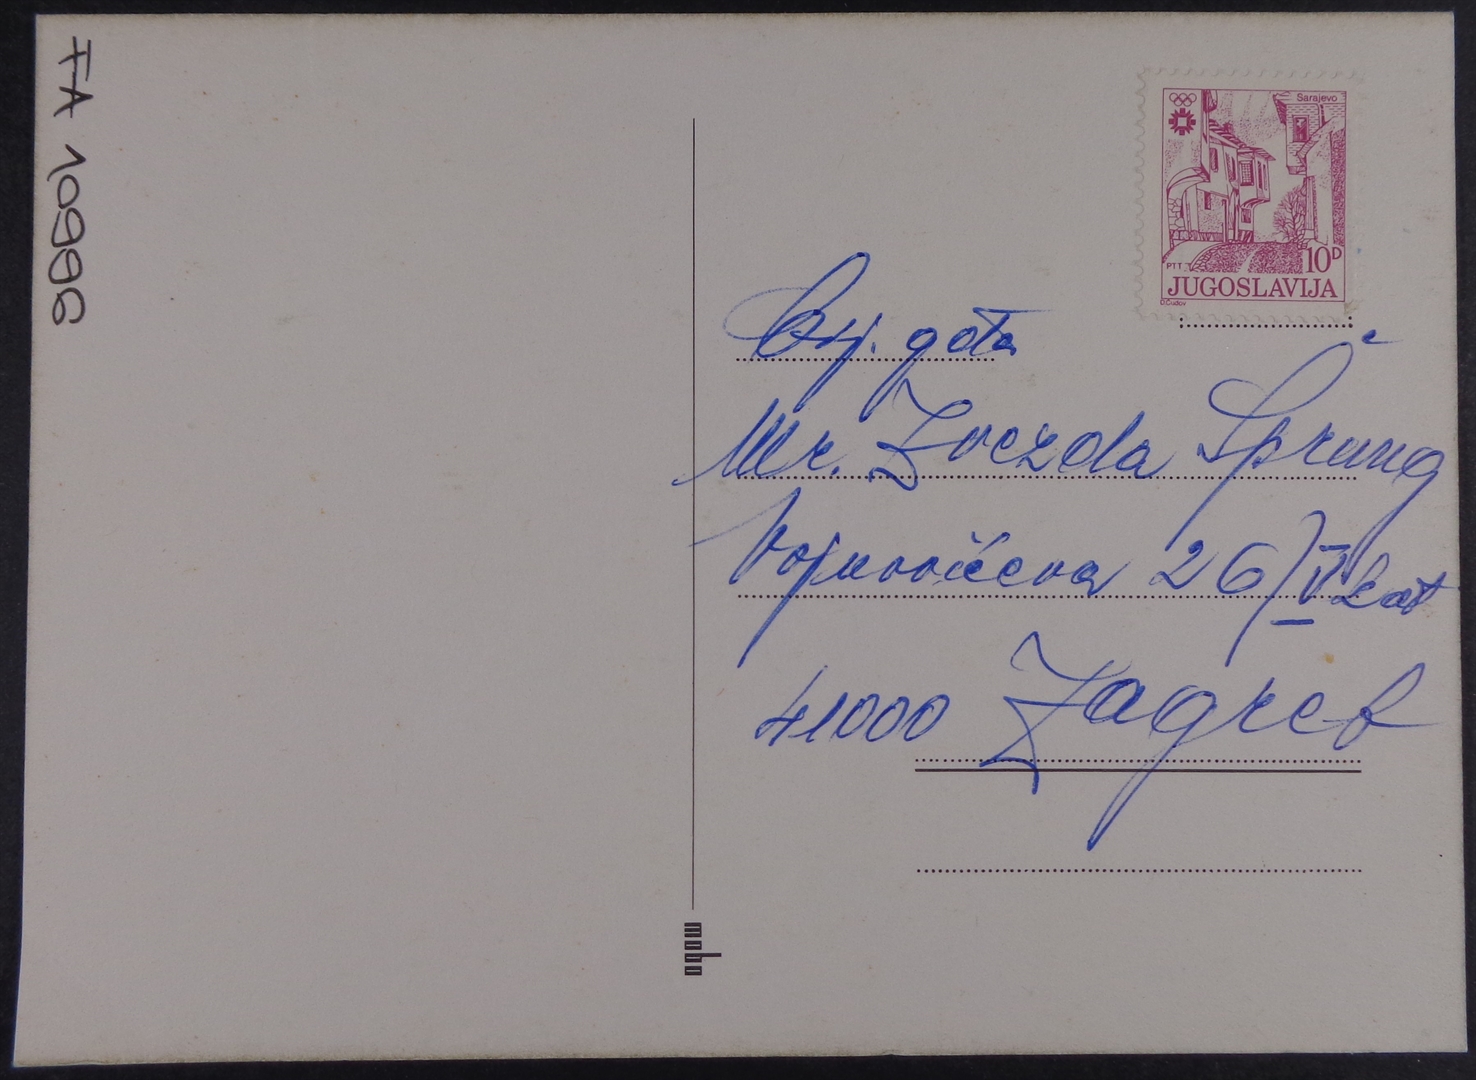 FA 10996
Sarajevo
PTT
10D
JUGOSLAVIJA
D.Čudov
Cij. gđa
Mr. Zvezda Šprung
Vojnovićeva 26/V kat
41000 Zagreb
mobo